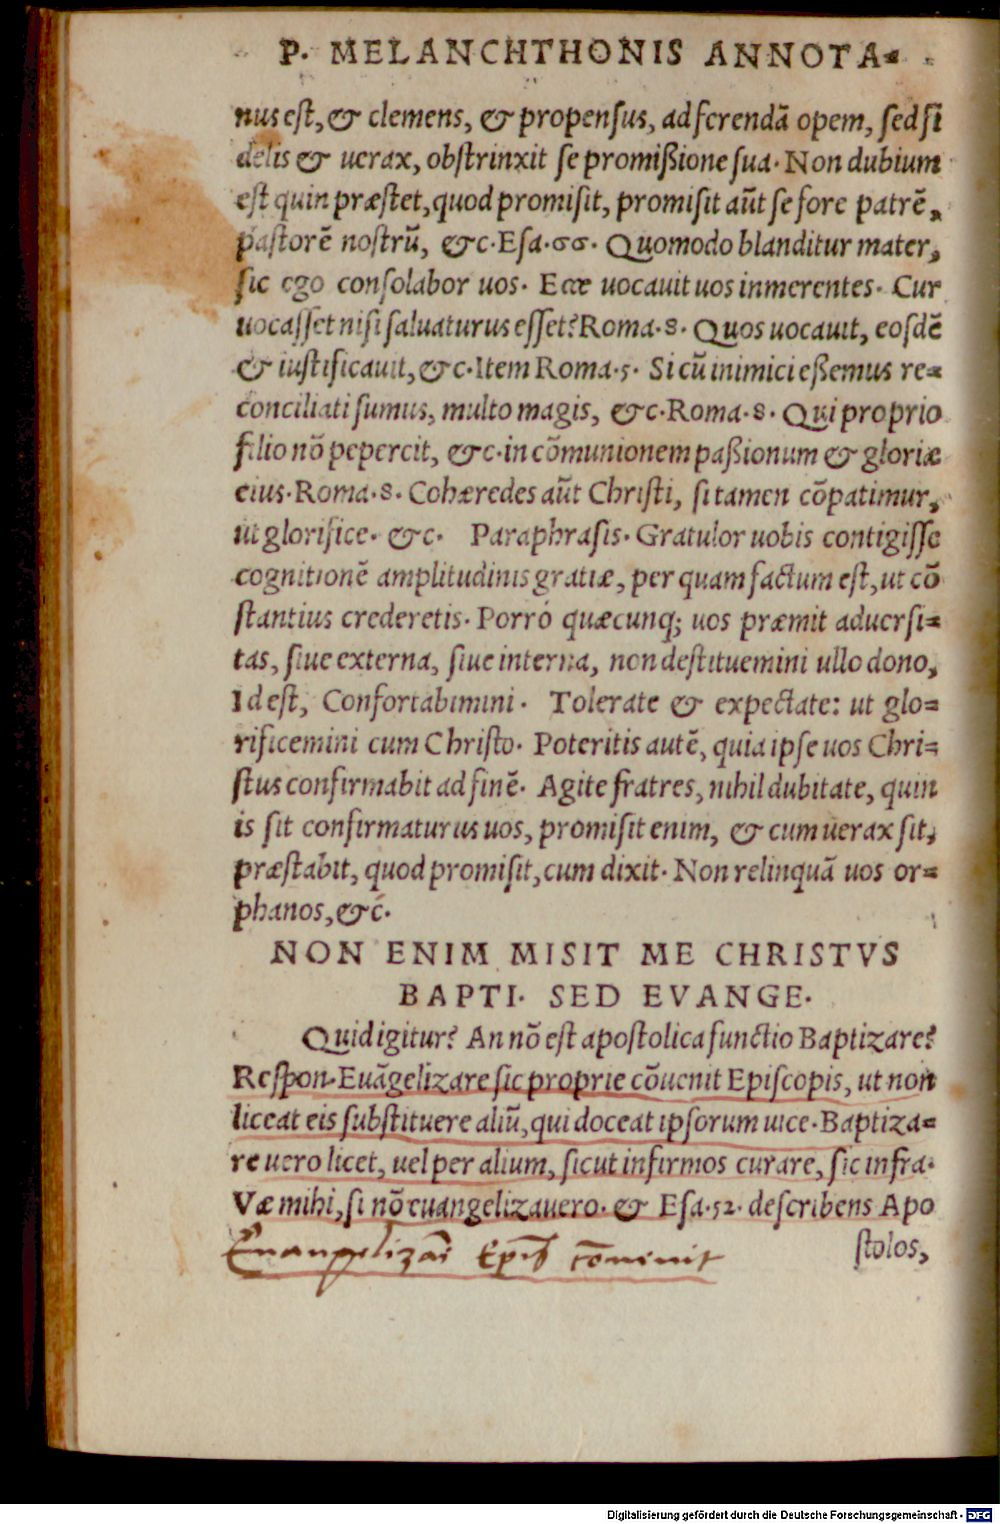 P. MELANCHTHONIS ANNOTA-
nus est, & clemens, & propensus, ad ferendā opem, sed fi
delis & uerax, obstrinxit se promißione sua. Non dubium
est quin præstet, quod promisit, promisit aūt se fore patrē,
pastorē nostrū, &c. Esa. 66. Quomodo blanditur mater,
sic ego consolabor uos. Ecce uocauit uos inmerentes. Cur
uocasset nisi saluaturus esset? Roma. 8. Quos uocauit, eosdē
& iustificauit, &c. Item Roma. 5. Si cū inimici eßemus re-
conciliati sumus, multo magis, &c. Roma. 8. Qui proprio
filio nō pepercit, &c. in cōmunionem paßionum & gloriæ
eius. Roma. 8. Cohæredes aūt Christi, si tamen cōpatimur,
ut glorifice. &c. Paraphrasis. Gratulor uobis contigisse
cognitionē amplitudinis gratiæ, per quam factum est, ut cō
stantius crederetis. Porrò quæcunq; uos præmit aduersi-
tas, siue externa, siue interna, non destituemini ullo dono,
Id est, Confortabimini. Tolerate & expectate: ut glo-
rificemini cum Christo. Poteritis autē, quia ipse uos Chri-
stus confirmabit ad finē. Agite fratres, nihil dubitate, quin
is sit confirmaturus uos, promisit enim, & cum uerax sit,
præstabit, quod promisit, cum dixit. Non relinquā uos or-
phanos, &c.
NON ENIM MISIT ME CHRISTVS
BAPTI. SED EVANGE.
Quid igitur? An nō est apostolica functio Baptizare?
Respon. Euāgelizare sic proprie cōuenit Episcopis, ut non
liceat eis substituere aliū, qui doceat ipsorum uice. Baptiza-
re uero licet, uel per alium, sicut infirmos curare, sic infra.
Væ mihi, si nō euangelizauero. & Esa. 52. describens Apo
stolos,
Euangelizare Epis convenit
Digitalisierung gefördert durch die Deutsche Forschungsgemeinschaft - DFG